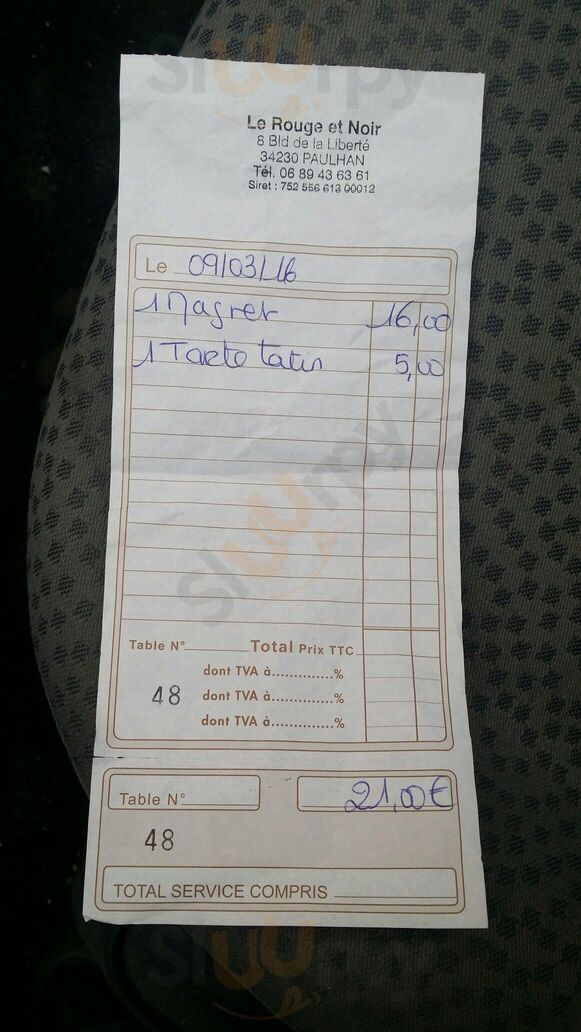 sluurpy
Le Rouge et Noir
8 Bld de la Liberté
34230 PAULHAN
Tél. 06 89 43 63 61
Siret : 752 556 613 00012
Le 09/03/16
1 Magret 16,00
1 Tarte tatin 5,00
sluurpy
Table N° Total Prix TTC
dont TVA à.............%
48 dont TVA à.............%
dont TVA à.............%
Table N° 21,00€
48
TOTAL SERVICE COMPRIS
sluurpy